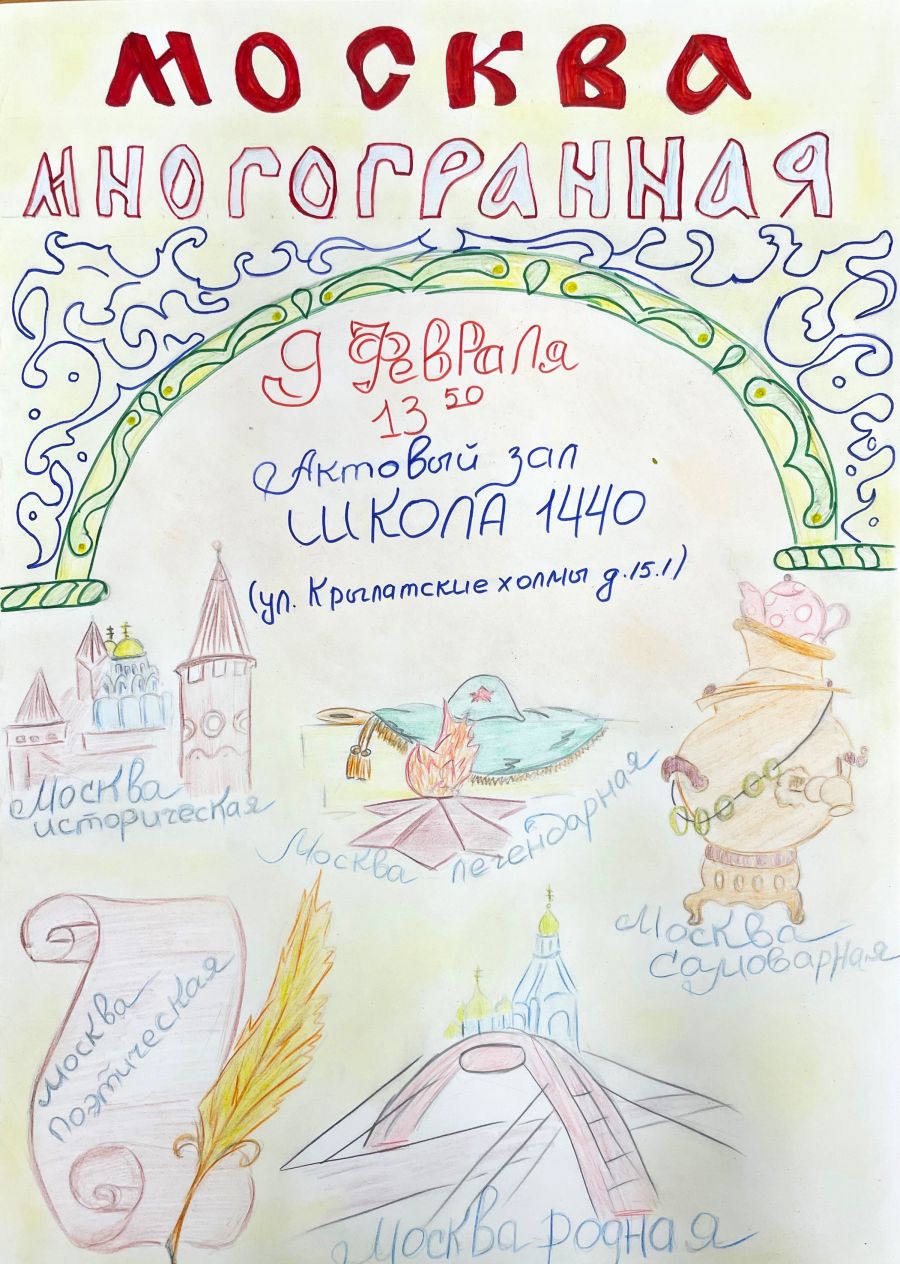 МОСКВА
МНОГОГРАННАЯ
9 Февраля
13 50
Актовый зал
ШКОЛА 1440
(ул. Крылатские холмы д.15.1)
Москва
историческая
Москва легендарная
Москва
самоварная
Москва
поэтическая
Москва родная